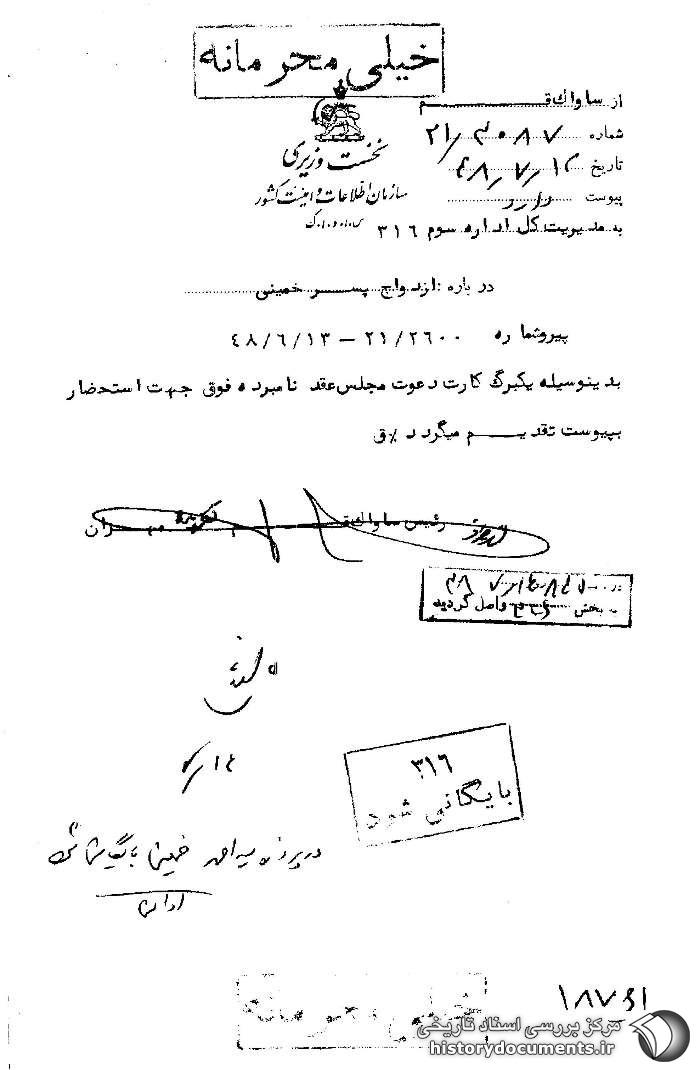 خیلی محرمانه
از ساواك قم
شماره ۲۱/۳۰۸۷
تاریخ ۴۸/۷/۱۲
پیوست دارد
نخست وزیری
سازمان اطلاعات و امنیت کشور
س.ا.و.ا.ك
به مدیریت کل اداره سوم ۳۱۶
درباره : ازدواج پسر خمینی
پیروشماره ۲۱/۲۶۰۰ – ۴۸/۶/۱۳
بدینوسیله یکبرگ کارت دعوت مجلس عقد نامبرده فوق جهت استحضار
بپیوست تقدیم میگردد ٪ق
رئیس ساواك قم
به بخش ۳۱۶ واصل گردید
۳۱۶
بایگانی شود
در پرونده سید احمد خمینی بایگانی
خیلی محرمانه
مرکز بررسی اسناد تاریخی
historydocuments.ir